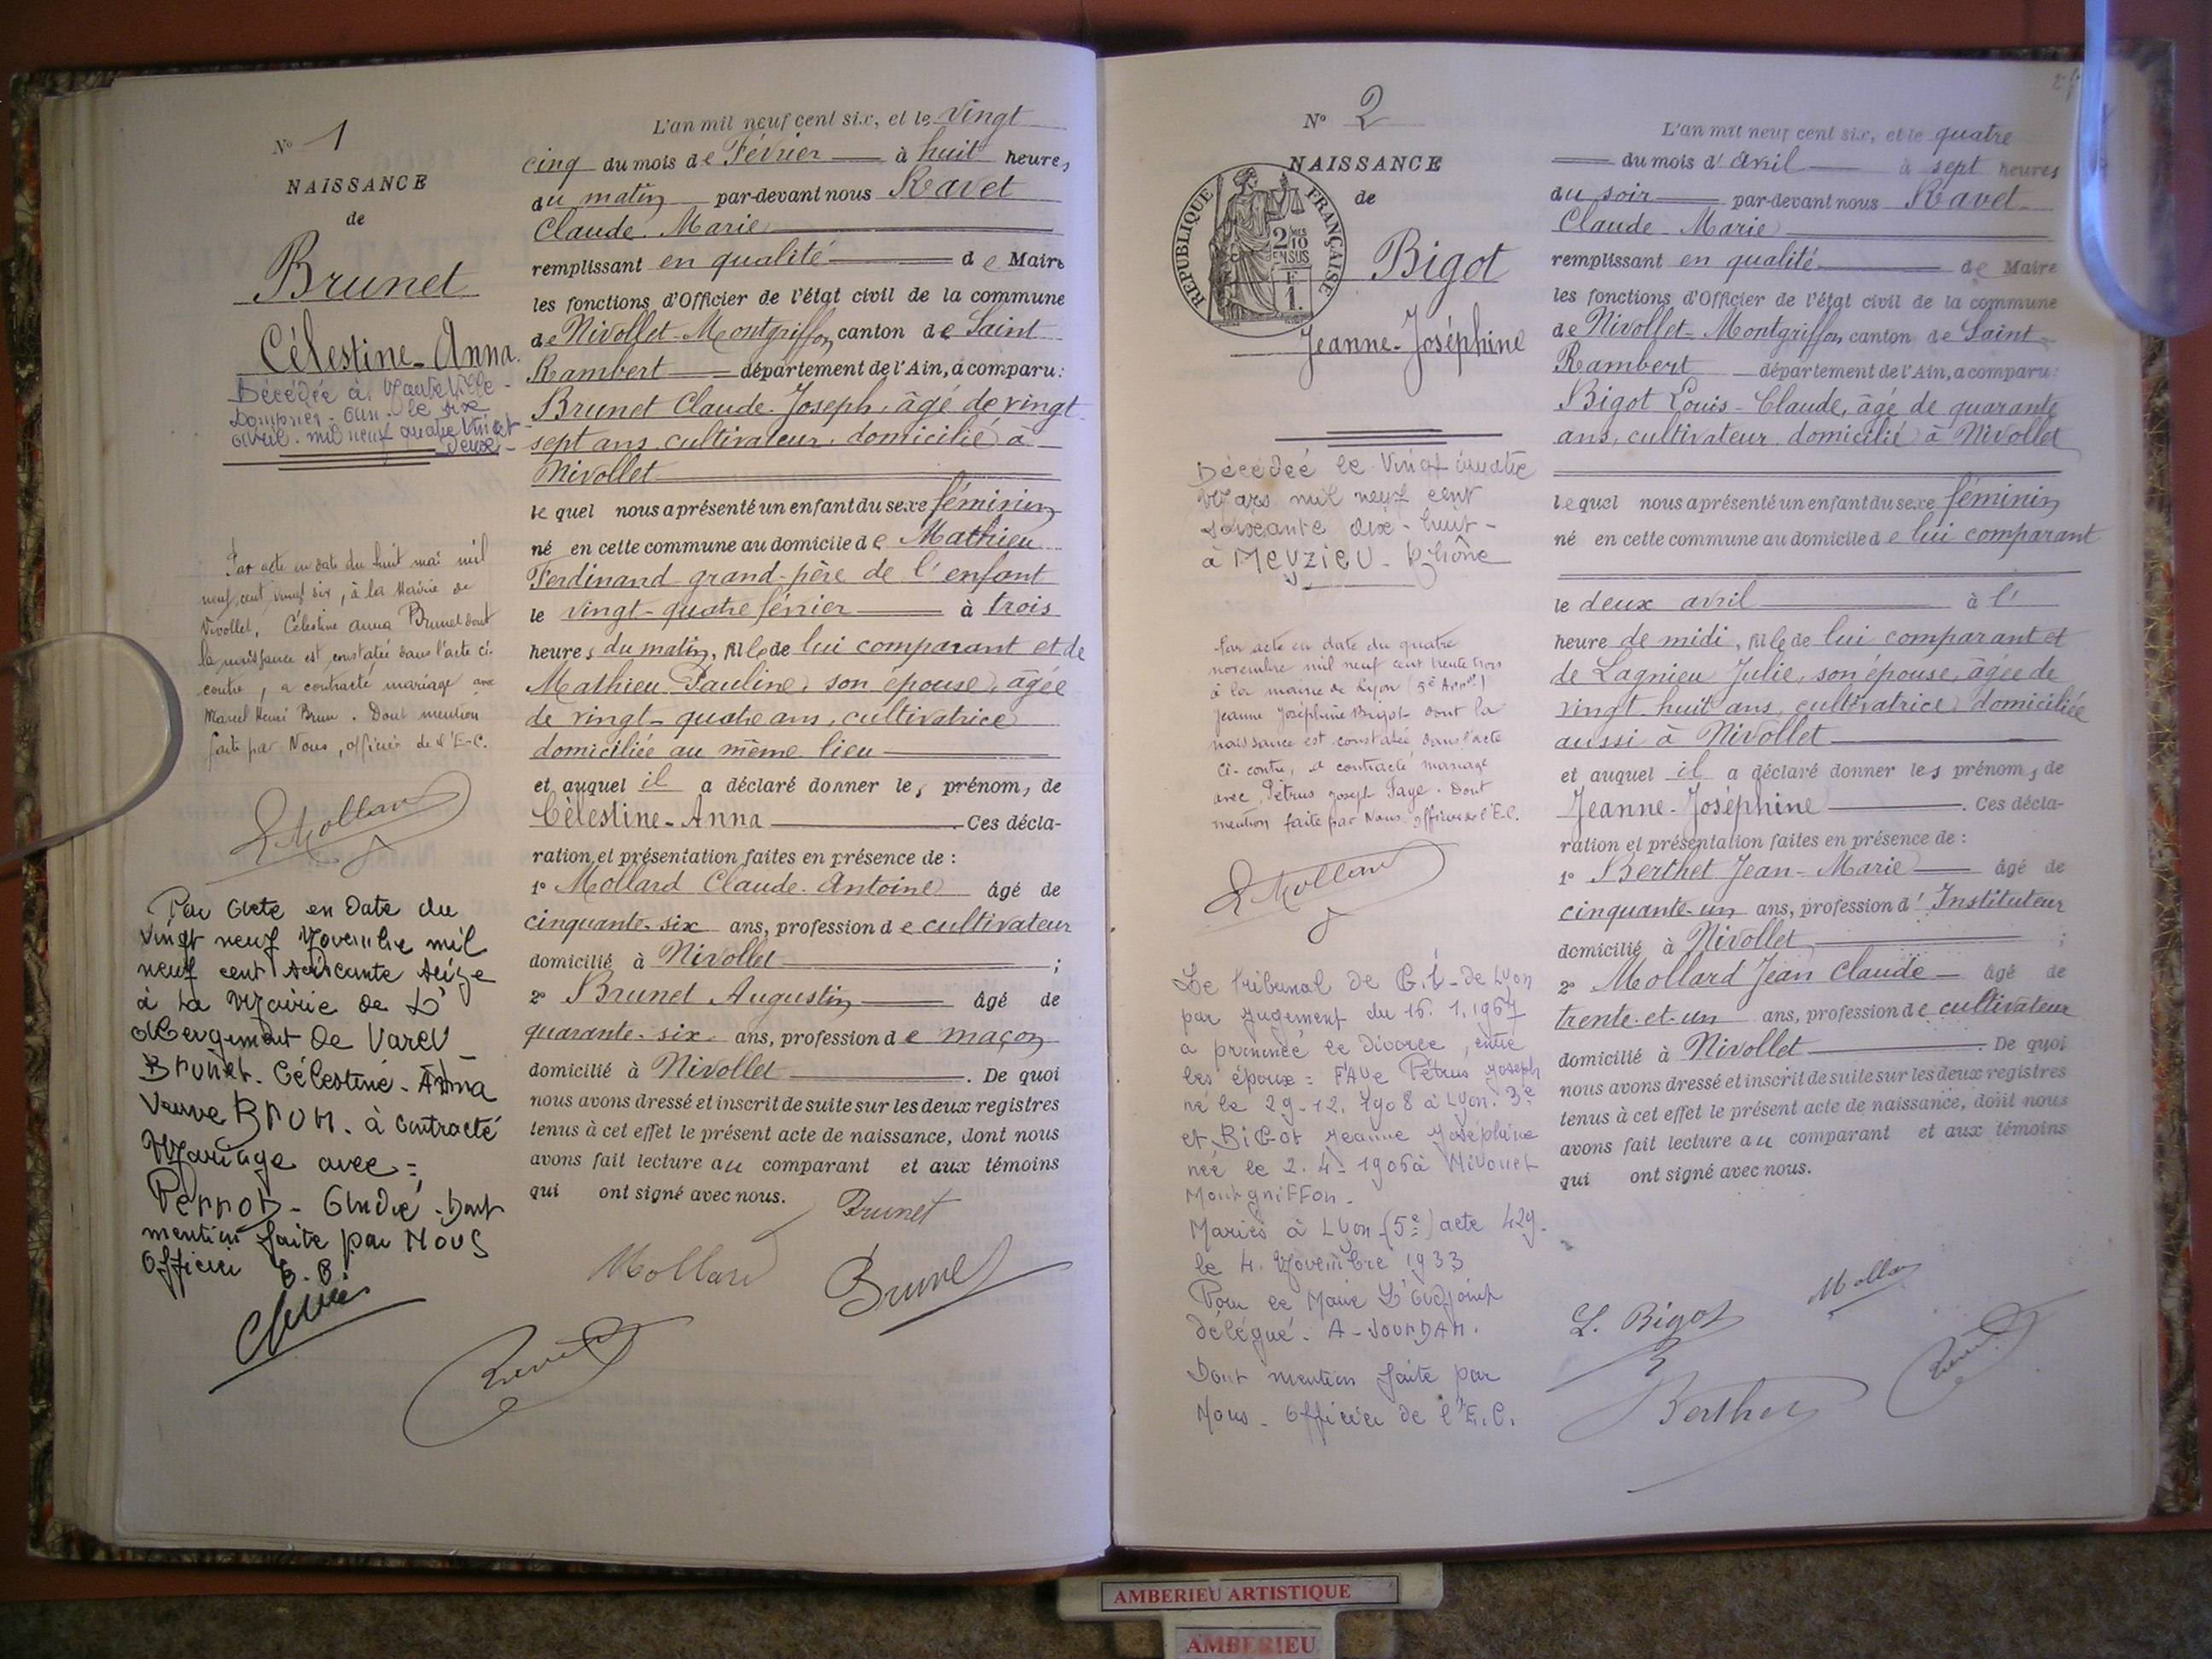 N° 1
NAISSANCE
de
Brunet
Célestine-Anna.
Décédée à Hauteville-
Lompnes - Ain - le six
Avril mil neuf quatre vingt
deux -
Par acte en date du huit mai mil
neuf cent vingt six, à la Mairie de
Nivollet, Célestine Anna Brunet dont
la naissance est constatée dans l'acte ci-
contre, a contracté mariage avec
Marcel Henri Brun. Dont mention
faite par Nous, officier de l'E-C.
Mollard
Par Acte en Date du
Vingt neuf Novembre mil
neuf cent soixante seize
à la Mairie de L'
Abergement de Varey
Brunet. Célestine - Anna
Veuve BRUN. à contracté
Mariage avec =
Perrot - André - Dont
mention faite par NOUS
Officier E.C.
L'an mil neuf cent six, et le Vingt
cinq du mois de Février à huit heures
du matin par-devant nous Ravet
Claude Marie
remplissant en qualité de Maire
les fonctions d'Officier de l'état civil de la commune
de Nivollet-Montgriffon, canton de Saint
Rambert département de l'Ain, a comparu:
Brunet Claude-Joseph, âgé de vingt-
sept ans, cultivateur, domicilié à
Nivollet
le quel nous a présenté un enfant du sexe féminin
né en cette commune au domicile de Mathieu
Ferdinand grand-père de l'enfant
le vingt-quatre février à trois
heures du matin, fille de lui comparant et de
Mathieu Pauline, son épouse, âgée
de vingt-quatre ans, cultivatrice
domiciliée au même lieu
et auquel il a déclaré donner les prénoms de
Célestine-Anna Ces décla-
ration et présentation faites en présence de :
1° Mollard Claude-Antoine âgé de
cinquante-six ans, profession de cultivateur
domicilié à Nivollet ;
2° Brunet Augustin âgé de
quarante-six ans, profession de maçon
domicilié à Nivollet . De quoi
nous avons dressé et inscrit de suite sur les deux registres
tenus à cet effet le présent acte de naissance, dont nous
avons fait lecture au comparant et aux témoins
qui ont signé avec nous.
Brunet
Mollard
Brunet
Ravet
N° 2
NAISSANCE
de
RÉPUBLIQUE FRANÇAISE
2/10 MES
EN SUS
F
1.
Bigot
Jeanne-Joséphine
Décédée le Vingt quatre
Mars mil neuf cent
soixante dix-huit -
à MEYZIEU - Rhône
Par acte en date du quatre
novembre mil neuf cent trente trois
à la mairie de Lyon (5e Arrt)
Jeanne Joséphine Bigot dont la
naissance est constatée dans l'acte
ci-contre, a contracté mariage
avec Pétrus Joseph Faye. Dont
mention faite par Nous officier de l'E-C.
Mollard
Le tribunal de G.I - de Lyon
par Jugement du 16.1.1967
a prononcé le Divorce, entre
les époux = FAYe Pétrus Joseph
né le 29-12.1908 à Lyon. 3e
et BiGot Jeanne Joséphine
née le 2.4-1906 à Nivollet
MontgriFFon -
Mariés à Lyon (5e) acte 429.
le 4. Novembre 1933
Pour le Maire L'Adjoint
délégué. A - JOURDAN.
Dont mention faite par
Nous - Officier de l'E.C.
L'an mil neuf cent six, et le quatre
du mois d'avril à sept heures
du soir par-devant nous Ravet
Claude-Marie
remplissant en qualité de Maire
les fonctions d'Officier de l'état civil de la commune
de Nivollet-Montgriffon, canton de Saint
Rambert département de l'Ain, a comparu:
Bigot Louis-Claude, âgé de quarante
ans, cultivateur domicilié à Nivollet
le quel nous a présenté un enfant du sexe féminin
né en cette commune au domicile de lui comparant
le deux avril à l'
heure de midi, fille de lui comparant et
de Lagnieu Julie, son épouse, âgée de
vingt-huit ans, cultivatrice domiciliée
aussi à Nivollet
et auquel il a déclaré donner les prénoms de
Jeanne-Joséphine . Ces décla-
ration et présentation faites en présence de :
1° Berthet Jean-Marie âgé de
cinquante-un ans, profession d'Instituteur
domicilié à Nivollet ;
2° Mollard Jean Claude âgé de
trente-et-un ans, profession de cultivateur
domicilié à Nivollet . De quoi
nous avons dressé et inscrit de suite sur les deux registres
tenus à cet effet le présent acte de naissance, dont nous
avons fait lecture au comparant et aux témoins
qui ont signé avec nous.
L. Bigot
Mollard
Berthet
Ravet
AMBERIEU ARTISTIQUE
AMBERIEU